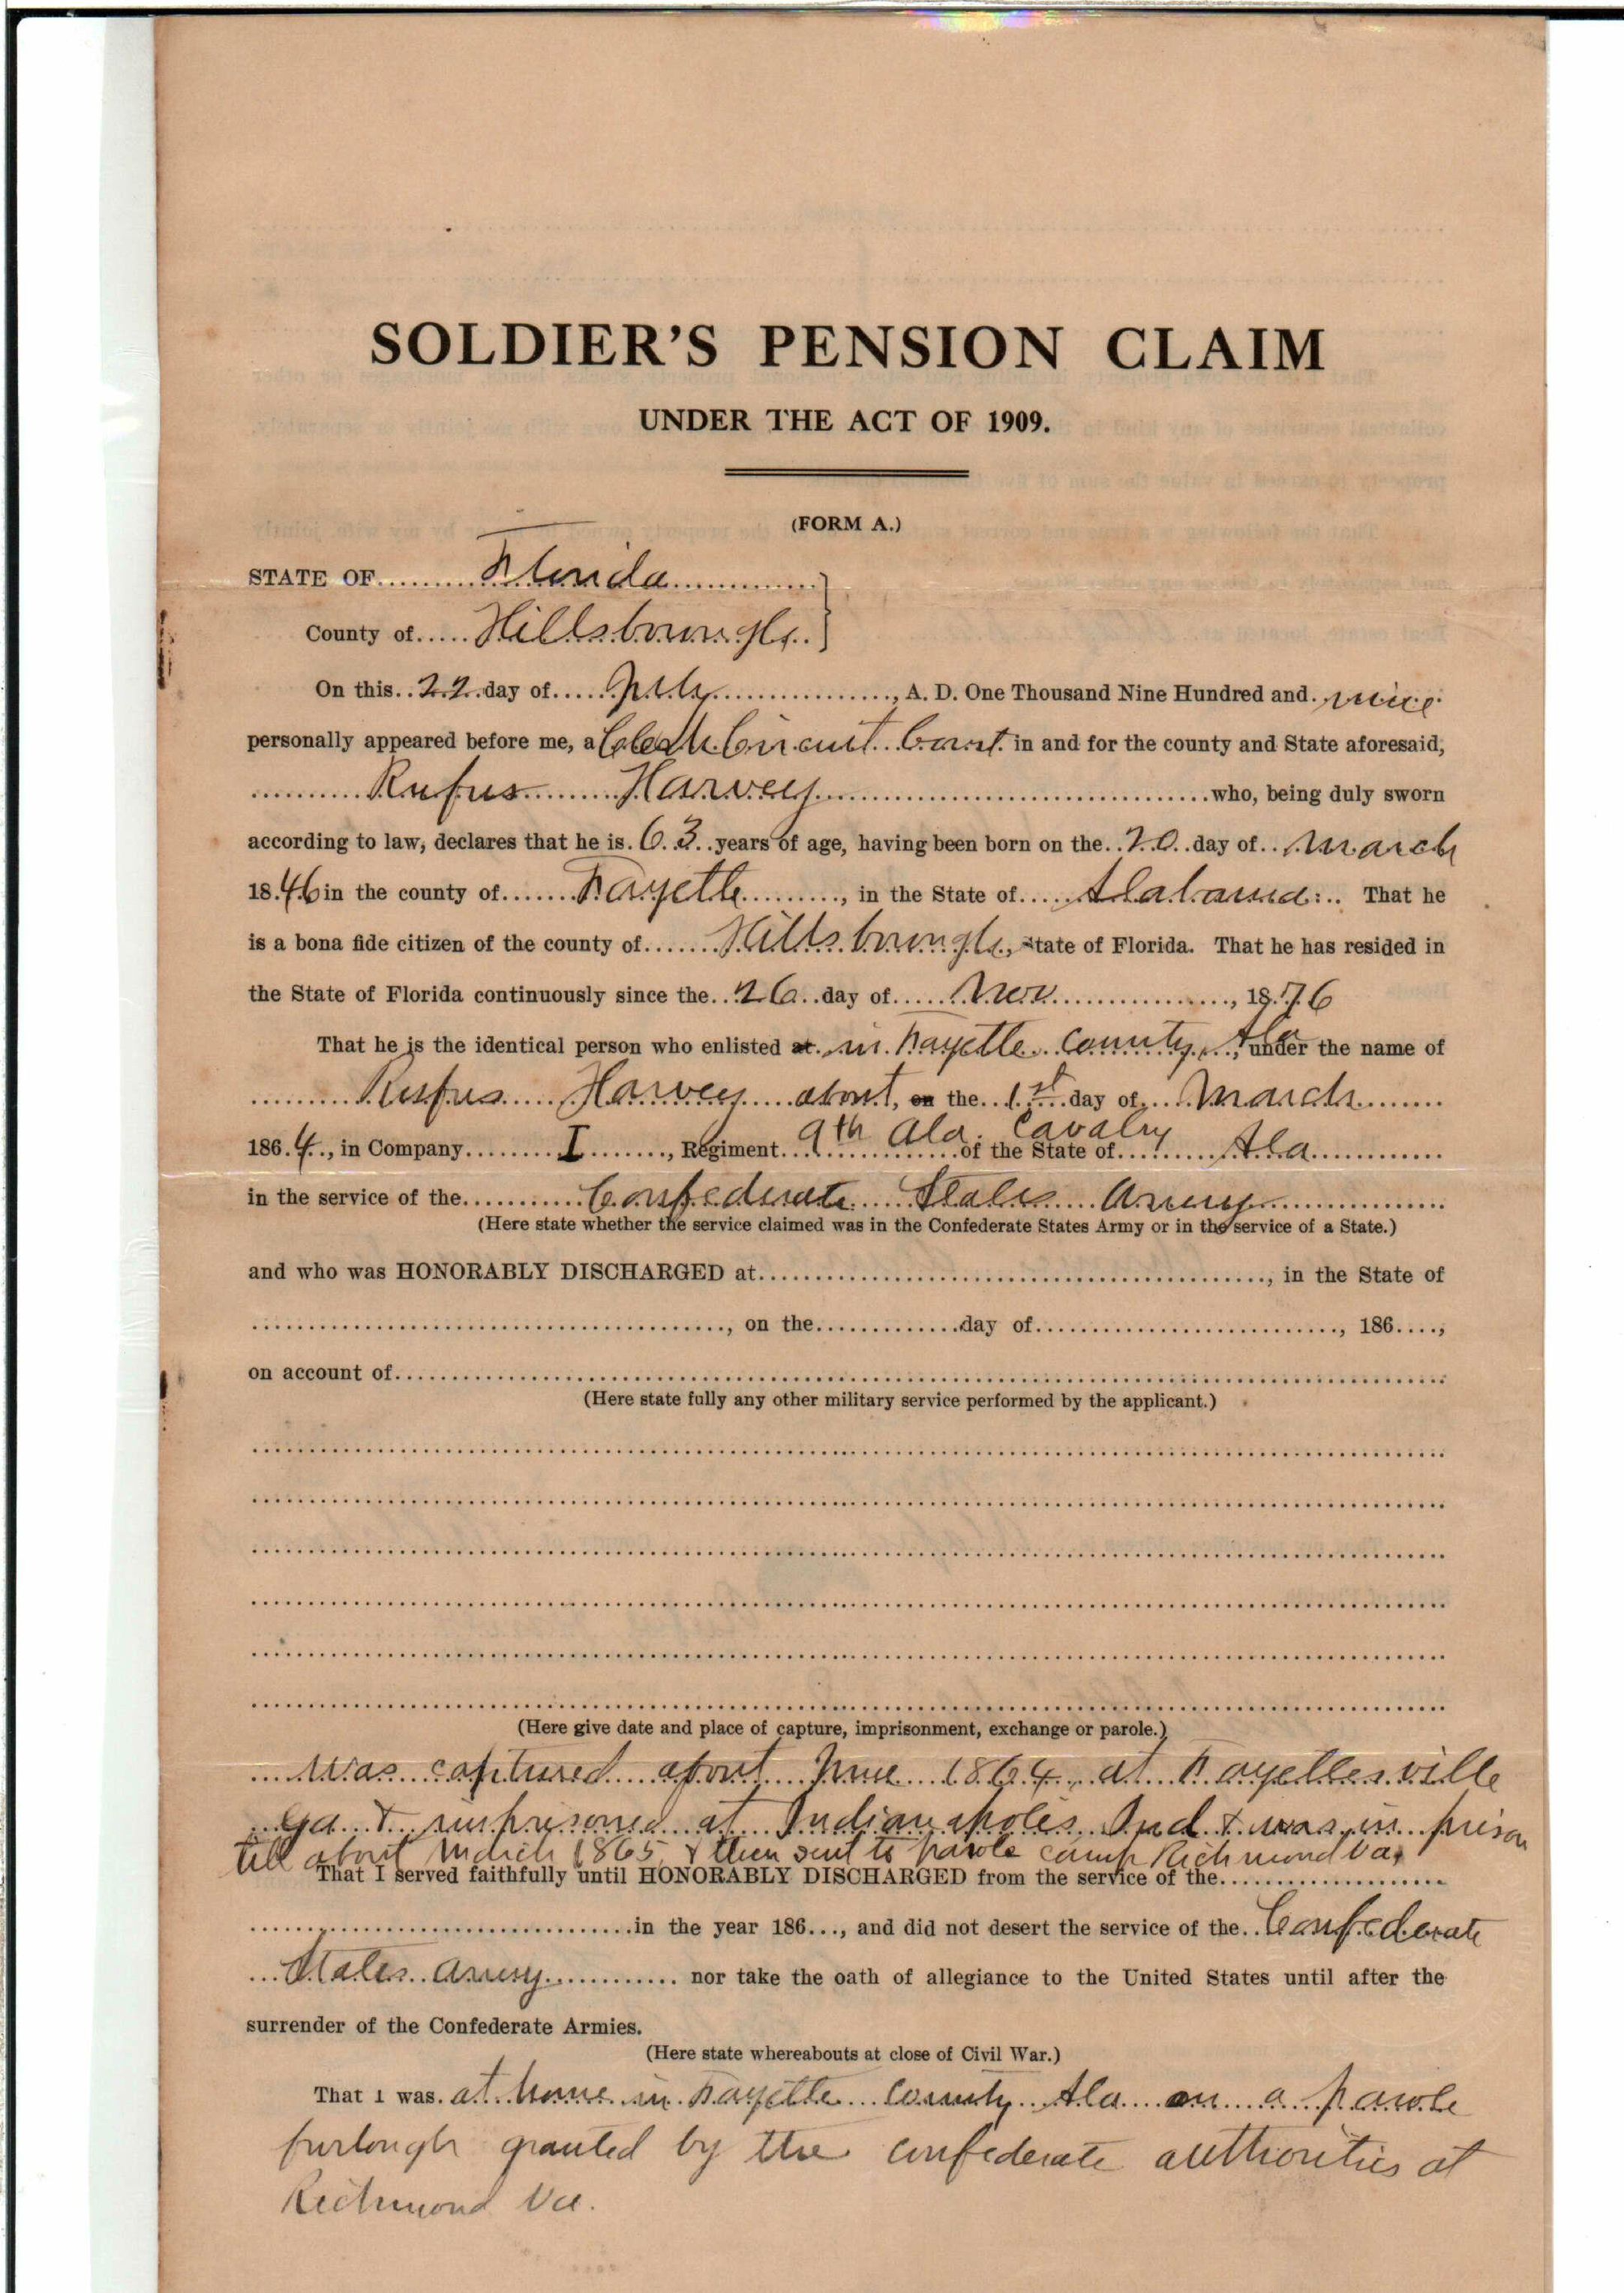 SOLDIER'S PENSION CLAIM
UNDER THE ACT OF 1909.
(FORM A.)
STATE OF Florida
County of Hillsborough
On this 22 day of July, A. D. One Thousand Nine Hundred and nine
personally appeared before me, a Clerk Circuit Court in and for the county and State aforesaid,
Rufus Harvey who, being duly sworn
according to law, declares that he is 63 years of age, having been born on the 20 day of March
1846 in the county of Fayette, in the State of Alabama. That he
is a bona fide citizen of the county of Hillsborough, State of Florida. That he has resided in
the State of Florida continuously since the 26 day of Nov, 1876
That he is the identical person who enlisted at in Fayette County, Ala, under the name of
Rufus Harvey about, on the 1st day of March
1864, in Company I, Regiment 9th Ala. Cavalry of the State of Ala
in the service of the Confederate States Army
(Here state whether the service claimed was in the Confederate States Army or in the service of a State.)
and who was HONORABLY DISCHARGED at, in the State of
, on the day of, 186,
on account of
(Here state fully any other military service performed by the applicant.)
(Here give date and place of capture, imprisonment, exchange or parole.)
Was captured about June 1864, at Fayettesville
Ga & imprisoned at Indianapoles Ind & was in prison
till about March 1865, & then sent to parole camp Richmond Va.
That I served faithfully until HONORABLY DISCHARGED from the service of the
in the year 186, and did not desert the service of the Confederate
States Army nor take the oath of allegiance to the United States until after the
surrender of the Confederate Armies.
(Here state whereabouts at close of Civil War.)
That I was at home in Fayette County Ala on a parole
furlough granted by the confederate authorities at
Richmond Va.